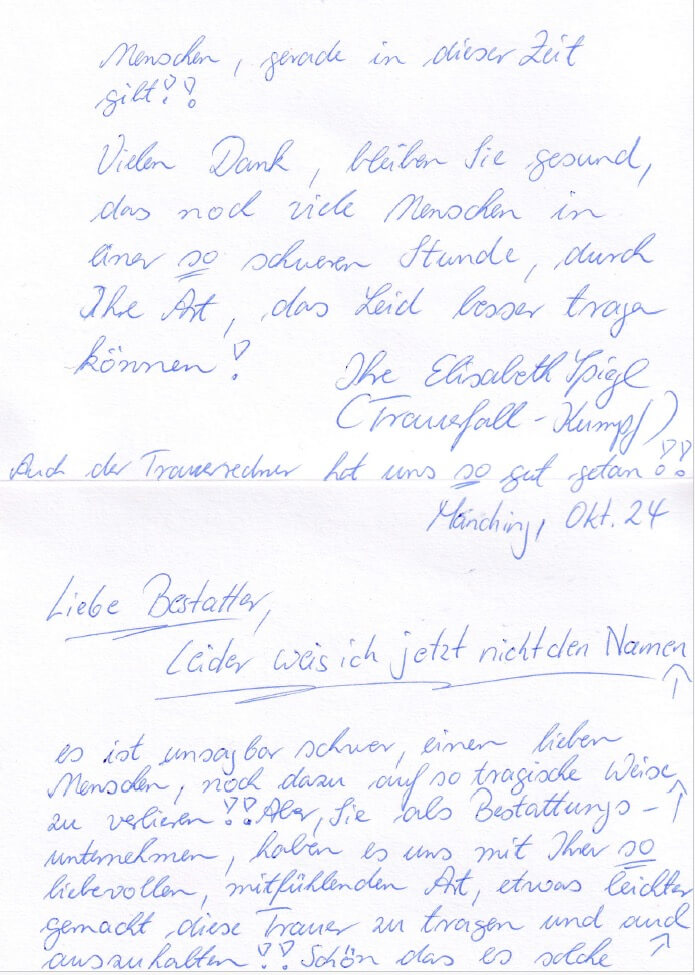 Menschen, gerade in dieser Zeit
gibt!!
Vielen Dank, bleiben Sie gesund,
das noch viele Menschen in
einer so schweren Stunde, durch
Ihre Art, das Leid besser tragen
können!
Ihre Elisabeth Spiegl
(Trauerfall - Kumpf)
Auch der Trauerredner hat uns so gut getan!!
Manching, Okt. 24
Liebe Bestatter,
Leider weis ich jetzt nicht den Namen
↑
es ist unsagbar schwer, einen lieben
Menschen, noch dazu auf so tragische Weise,
↑
zu verlieren!! Aber, Sie als Bestattungs-
unternehmen, haben es uns mit Ihrer so
liebevollen, mitfühlenden Art, etwas leichter
gemacht diese Trauer zu tragen und auch
↑
auszuhalten!! Schön das es solche